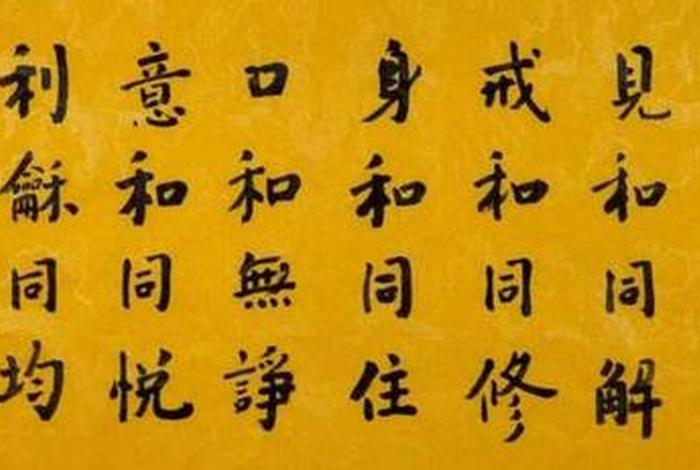 見和同解
戒和同修
身和同住
口和無諍
意和同悅
利龢同均